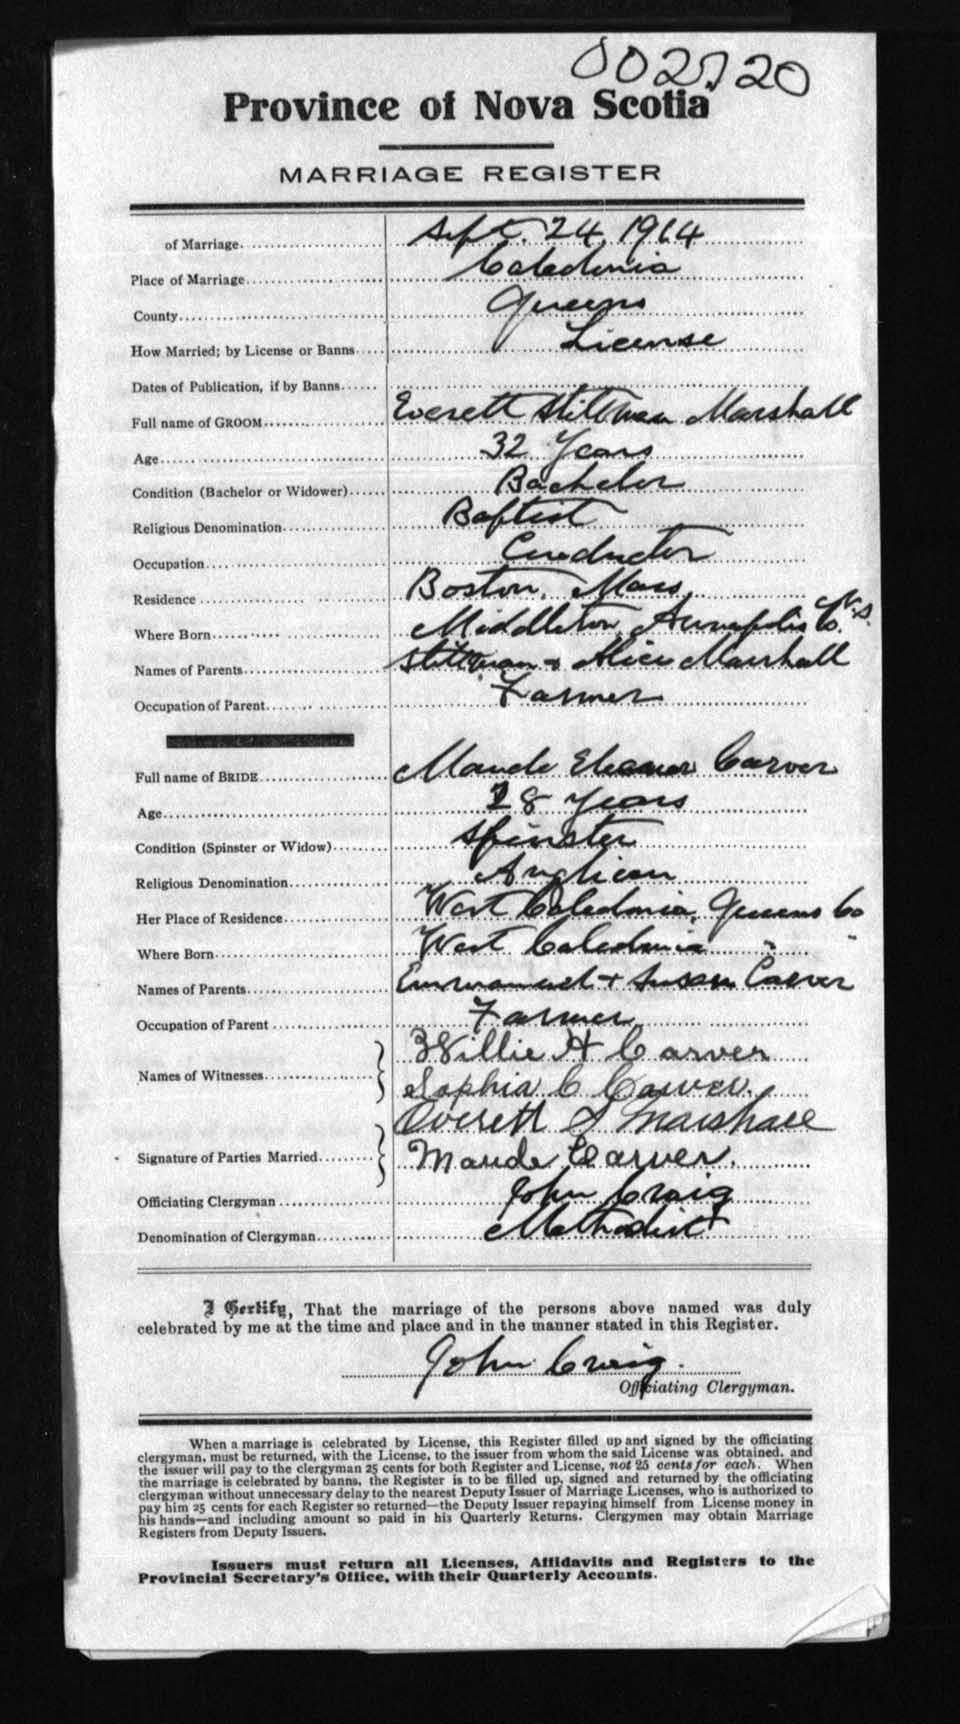 002720
Province of Nova Scotia
MARRIAGE REGISTER
of Marriage Sept. 24, 1914
Place of Marriage Caledonia
County Queens
How Married; by License or Banns License
Dates of Publication, if by Banns
Full name of GROOM Everett Stillman Marshall
Age 32 Years
Condition (Bachelor or Widower) Bachelor
Religious Denomination Baptist
Occupation Conductor
Residence Boston, Mass
Where Born Middleton, Annapolis Co. N.S.
Names of Parents Stillman + Alice Marshall
Occupation of Parent Farmer
Full name of BRIDE Maude Eleanor Carver
Age 28 years
Condition (Spinster or Widow) Spinster
Religious Denomination Anglican
Her Place of Residence West Caledonia, Queens Co
Where Born West Caledonia " "
Names of Parents Emmanuel + Susan Carver
Occupation of Parent Farmer
Names of Witnesses Willie H Carver
Sophia C Carver.
Everett S Marshall
Signature of Parties Married Maude Carver.
Officiating Clergyman John Craig
Denomination of Clergyman Methodist
I Certify, That the marriage of the persons above named was duly
celebrated by me at the time and place and in the manner stated in this Register.
John Craig.
Officiating Clergyman.
When a marriage is celebrated by License, this Register filled up and signed by the officiating
clergyman, must be returned, with the License, to the issuer from whom the said License was obtained, and
the issuer will pay to the clergyman 25 cents for both Register and License, not 25 cents for each. When
the marriage is celebrated by banns, the Register is to be filled up, signed and returned by the officiating
clergyman without unnecessary delay to the nearest Deputy Issuer of Marriage Licenses, who is authorized to
pay him 25 cents for each Register so returned—the Deputy Issuer repaying himself from License money in
his hands—and including amount so paid in his Quarterly Returns. Clergymen may obtain Marriage
Registers from Deputy Issuers.
Issuers must return all Licenses, Affidavits and Registers to the
Provincial Secretary's Office, with their Quarterly Accounts.